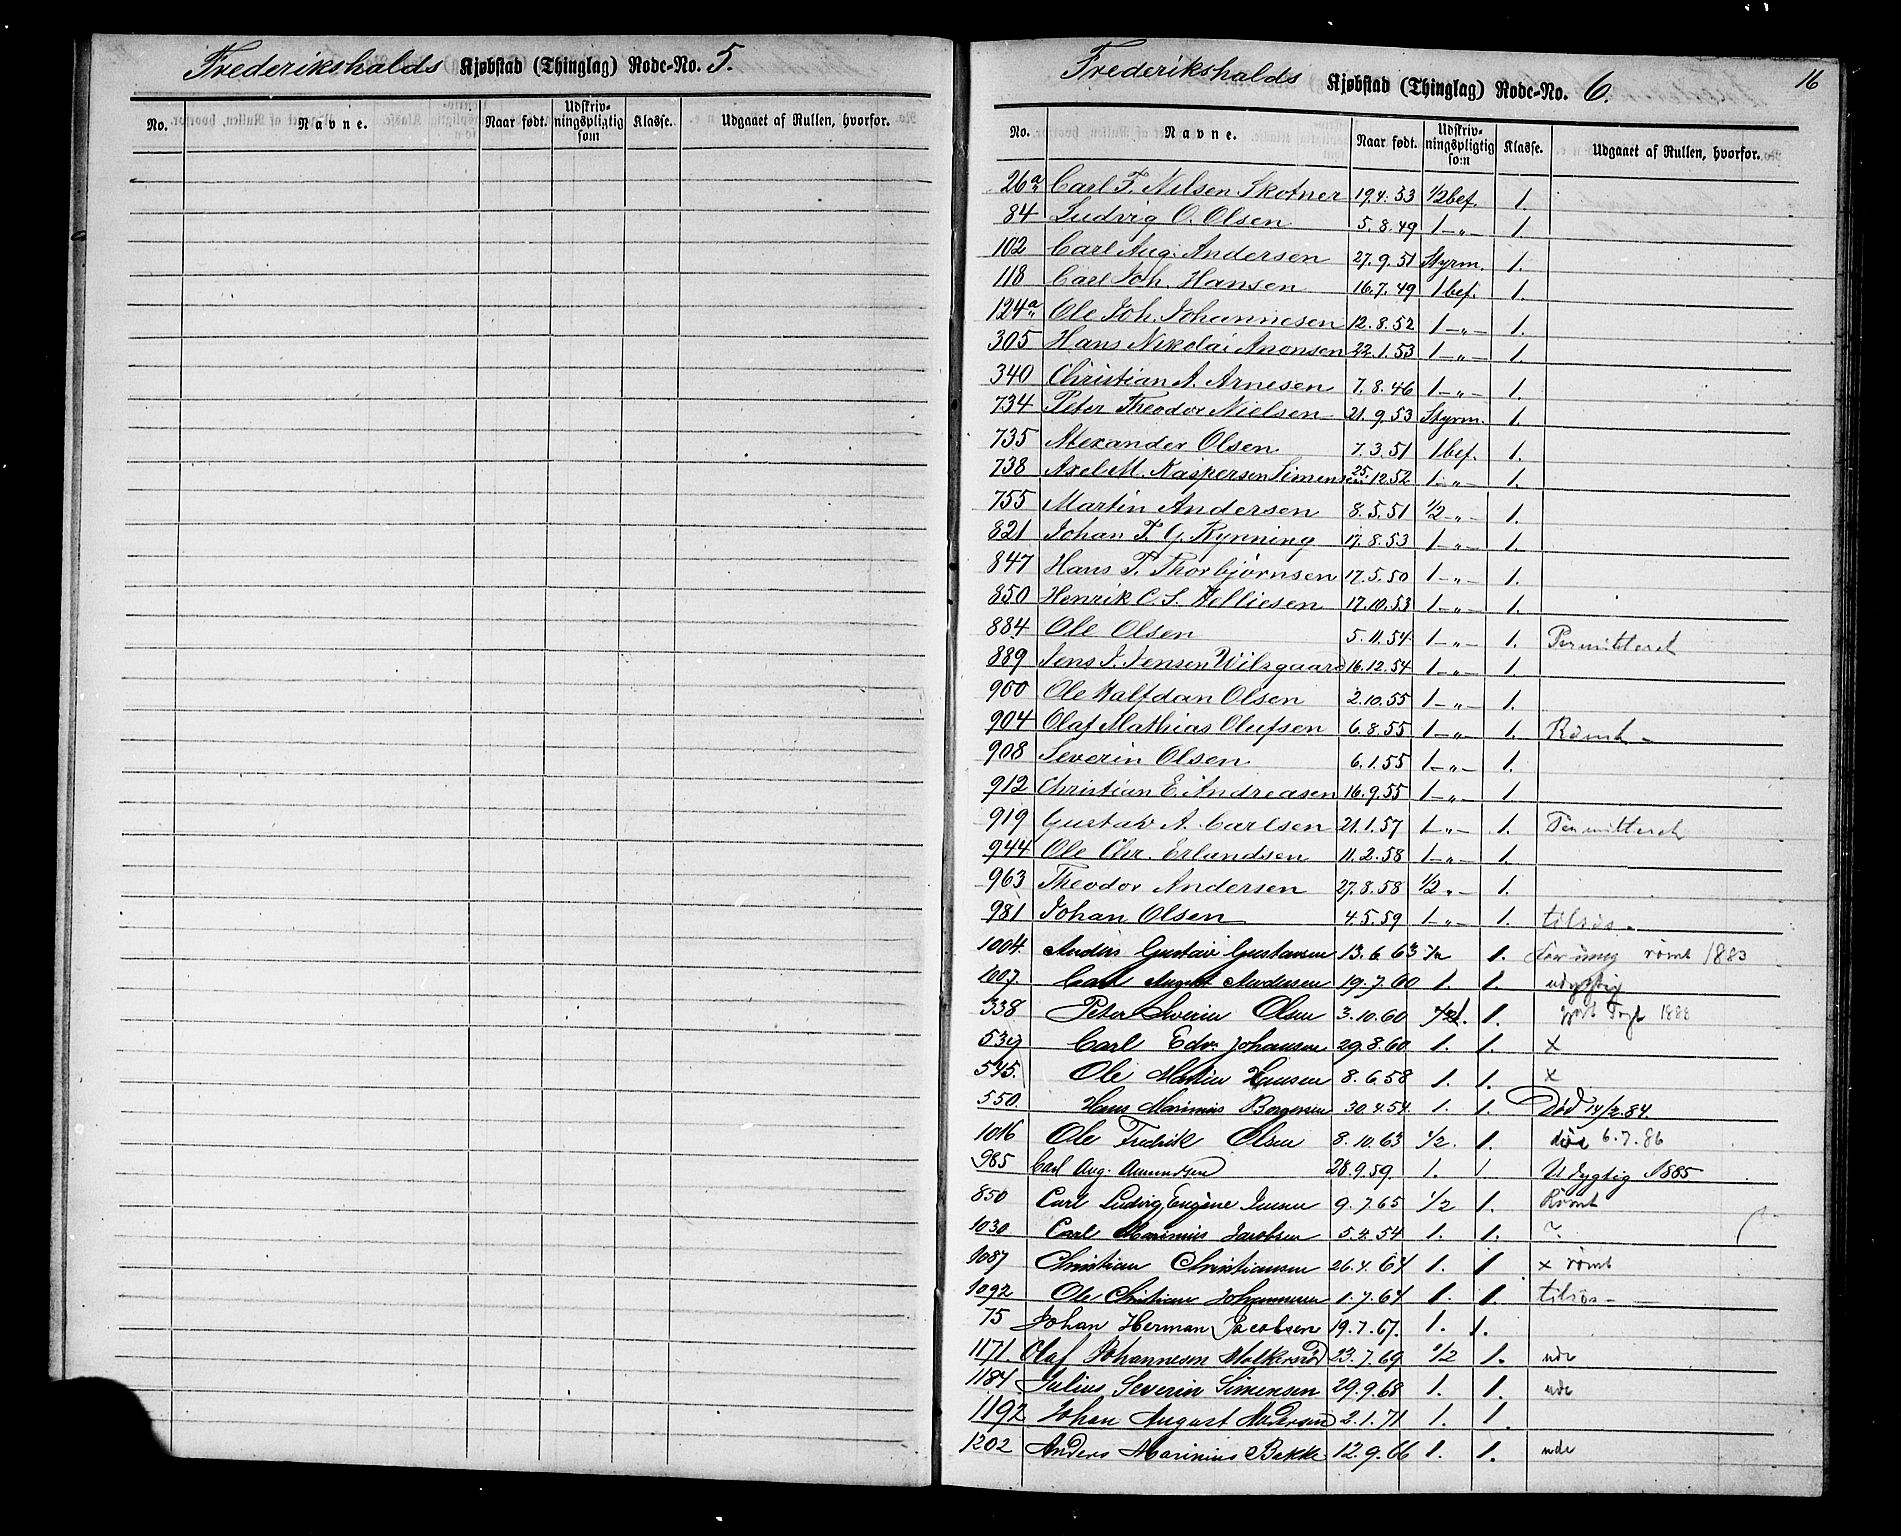 Frederikshalds Kjøbstad (Thinglag) Rode-No. 5.
No. Navne. Naar født. Udskrivningspligtig som Klasse. Udgaaet af Rullen, hvorfor.
16
Frederikshalds Kjøbstad (Thinglag) Rode-No. 6.
No. Navne. Naar født. Udskrivningspligtig som Klasse. Udgaaet af Rullen, hvorfor.
26a Carl F. Nilsen Skotner 19.4.53 1/2 bef. 1.
84 Ludvig O. Olsen 5.8.49 1 -„- 1.
102 Carl Aug. Andersen 27.9.51 Styrm. 1.
118 Carl Joh. Hansen 16.7.49 1 bef. 1.
124a Ole Joh. Johannesen 12.8.52 1 -„- 1.
305 Hans Nikolai Anonsen 22.1.53 1 -„- 1.
340 Christian A. Arnesen 7.8.46 1 -„- 1.
734 Peter Theodor Nielsen 21.9.53 Styrm. 1.
735 Alexander Olsen 7.3.51 1 bef. 1.
738 Axel M. Kaspersen Simensen 25.12.52 1 -„- 1.
755 Martin Andersen 8.5.51 1/2 -„- 1.
821 Johan F. G. Rynning 17.8.53 1 -„- 1.
847 Hans P. Thorbjørnsen 17.5.50 1 -„- 1.
850 Henrik C. S. Helliesen 17.10.53 1 -„- 1.
884 Ole Olsen 5.11.54 1 -„- 1. Permitteret
889 Jens J. Jensen Wilsgaard 16.12.54 1 -„- 1.
900 Ole Halfdan Olsen 2.10.55 1 -„- 1.
904 Olaf Mathias Olufsen 6.8.55 1 -„- 1. Rømt -
908 Severin Olsen 6.1.55 1 -„- 1.
912 Christian E. Andreasen 16.9.55 1 -„- 1.
919 Gustav A. Carlsen 21.1.57 1 -„- 1. Permitteret
944 Ole Chr. Erlandsen 11.2.58 1 -„- 1.
963 Theodor Andersen 27.8.58 1/2 „- 1.
981 Johan Olsen 4.5.59 1 -„- 1. tilsøs -
1004. Anders Gustav Gustavsen 13.6.63 1/2 1. rømt 1883
1007. Carl August Andersen 19.7.60 1. 1. udygtig
338 Peter Severin Olsen 3.10.60 1. gjort Togt 1888
539 Carl Edv. Johansen 29.8.60 1. 1. x
545. Ole Martin Hansen 8.6.58 1. 1. x
550. Hans Marinius Borgersen 30.4.54 1. 1. Død 14/2.84.
1016 Ole Fredrik Olsen 8.10.63 1/2. 1. død 6.7.86
985 Carl Aug. Amundsen 28.9.59. 1. 1. Udygtig 1885
850 Carl Ludvig Eugène Jensen 9.7.65 1/2 1. Rømt
1030 Carl Marinius Jacobsen 5.2.54 1. 1. ?
1087 Christian Christiansen 26.4.64 1. 1 x rømt
1092 Ole Christian Johannesen 1.7.64 1. 1. tilsøs -
75 Johan Herman Jacobsen 19.7.67. 1. 1.
1171. Olaf Johannesen Molkersrød 23.7.69 1/2 1. ude
1184 Julius Severin Simensen 29.9.68 1. 1. ude
1192 Johan August Andersen 2.1.71 1. 1
1202 Anders Marinius Bakke 12.9.66 1. 1. ude